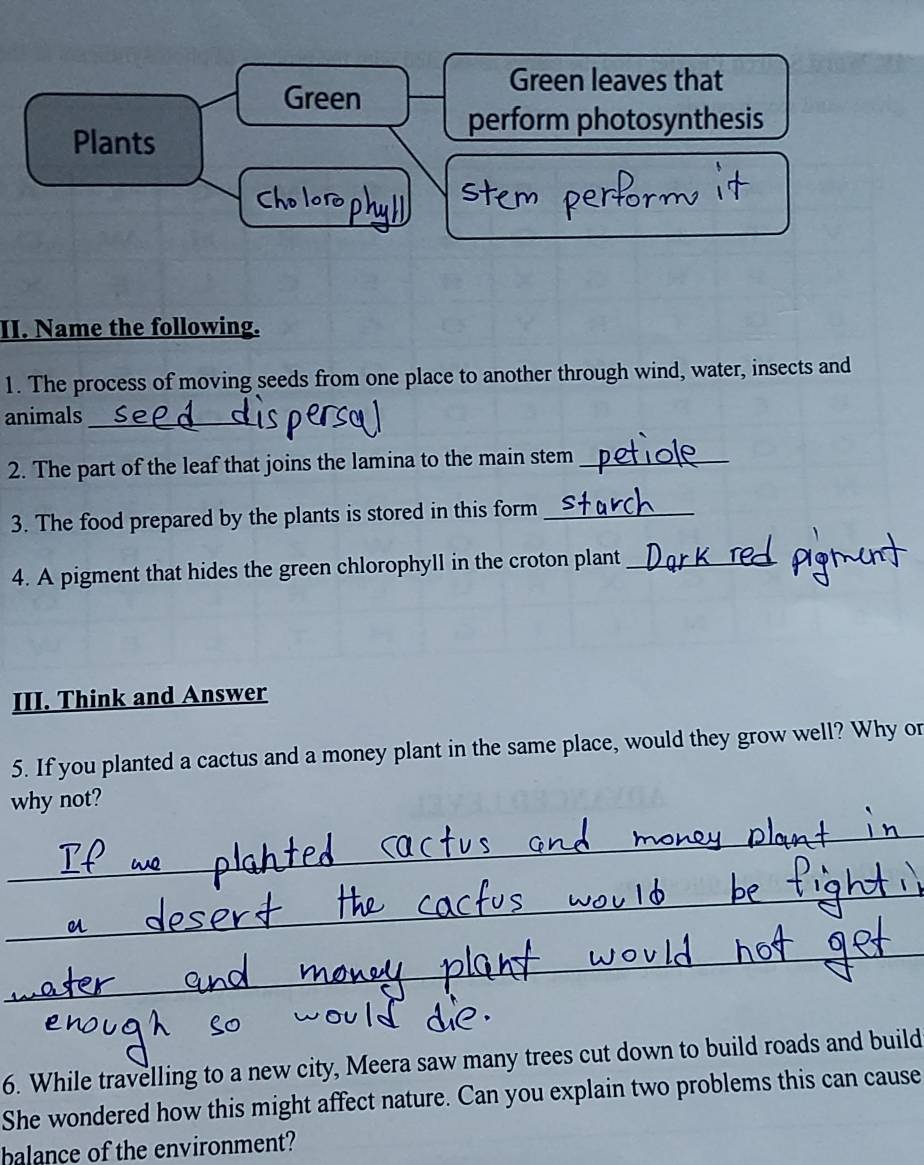 Green
Green leaves that
perform photosynthesis
Plants
Cholorophyll
stem perform it
II. Name the following.
1. The process of moving seeds from one place to another through wind, water, insects and
animals seed dispersal
2. The part of the leaf that joins the lamina to the main stem petiole
3. The food prepared by the plants is stored in this form starch
4. A pigment that hides the green chlorophyll in the croton plant Dark red pigment
III. Think and Answer
5. If you planted a cactus and a money plant in the same place, would they grow well? Why or
why not?
If we planted cactus and money plant in
a desert the cactus would be
water and money plant would not get
enough so would die.
6. While travelling to a new city, Meera saw many trees cut down to build roads and build
She wondered how this might affect nature. Can you explain two problems this can cause
balance of the environment?